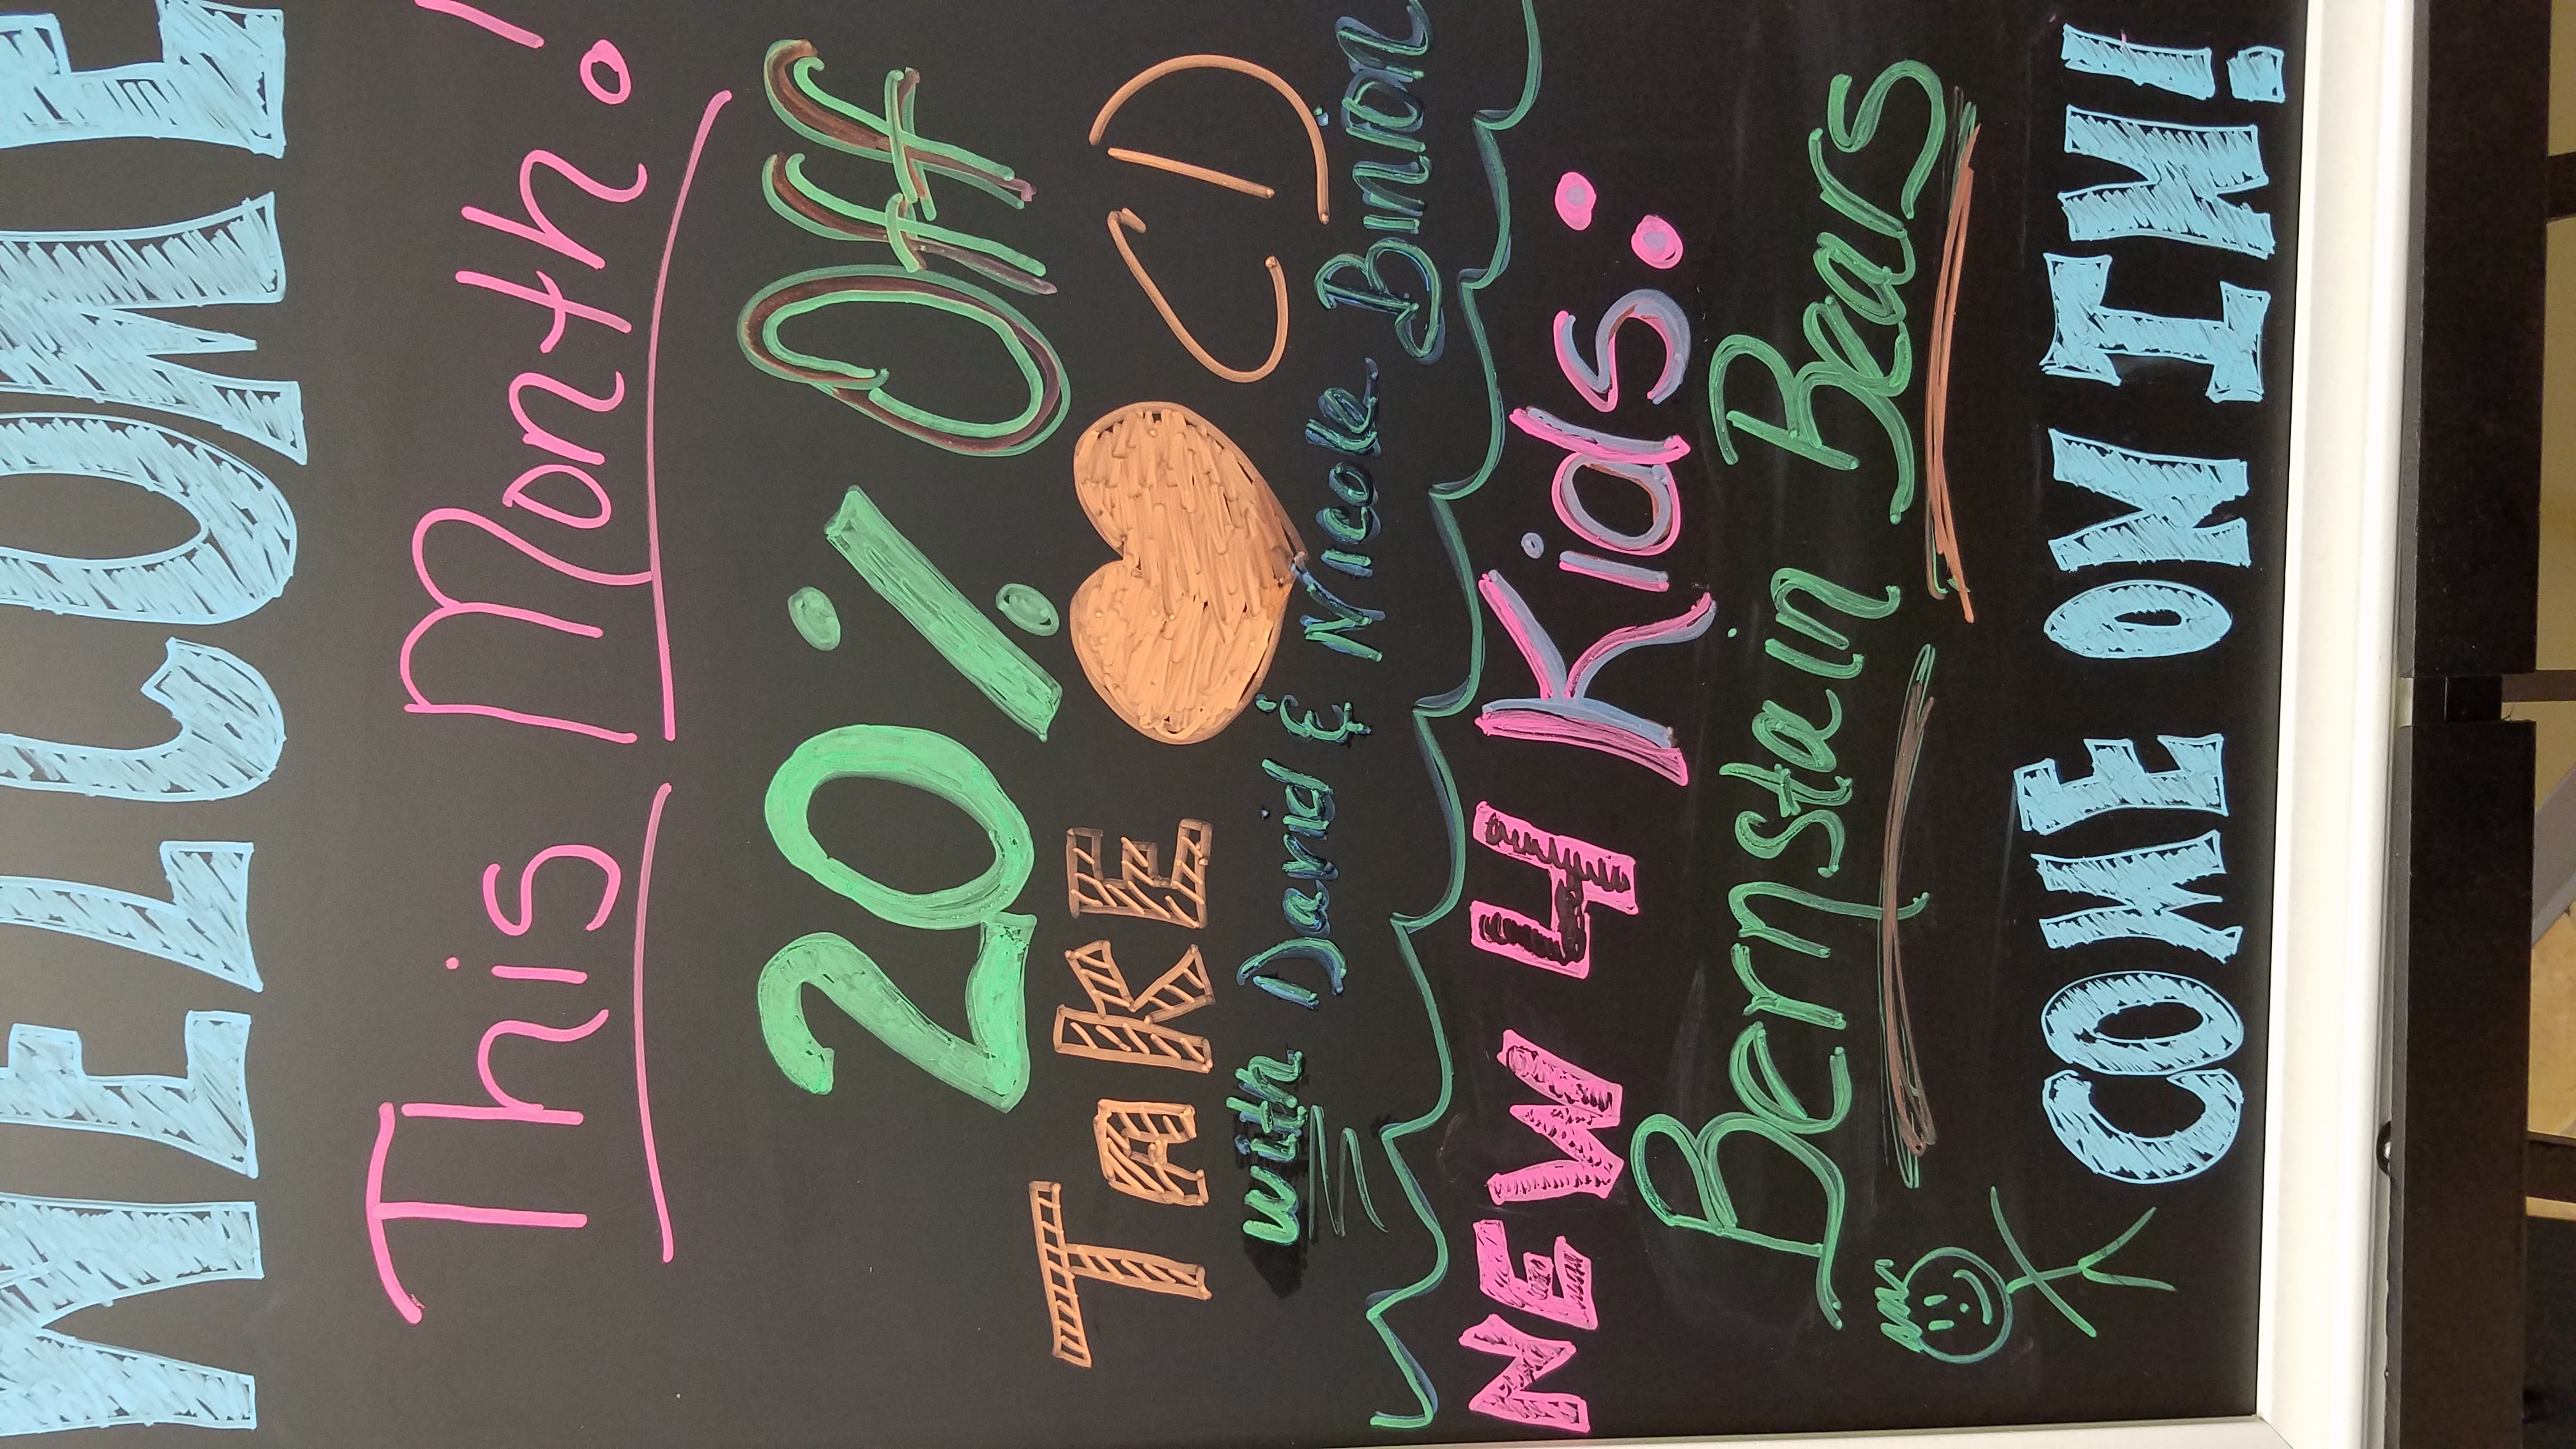 WELCOME
This Month!
20% Off
TAKE CD
with David & Nicole Binion
NEW 4 Kids:
Bernstain Bears
COME ON IN!